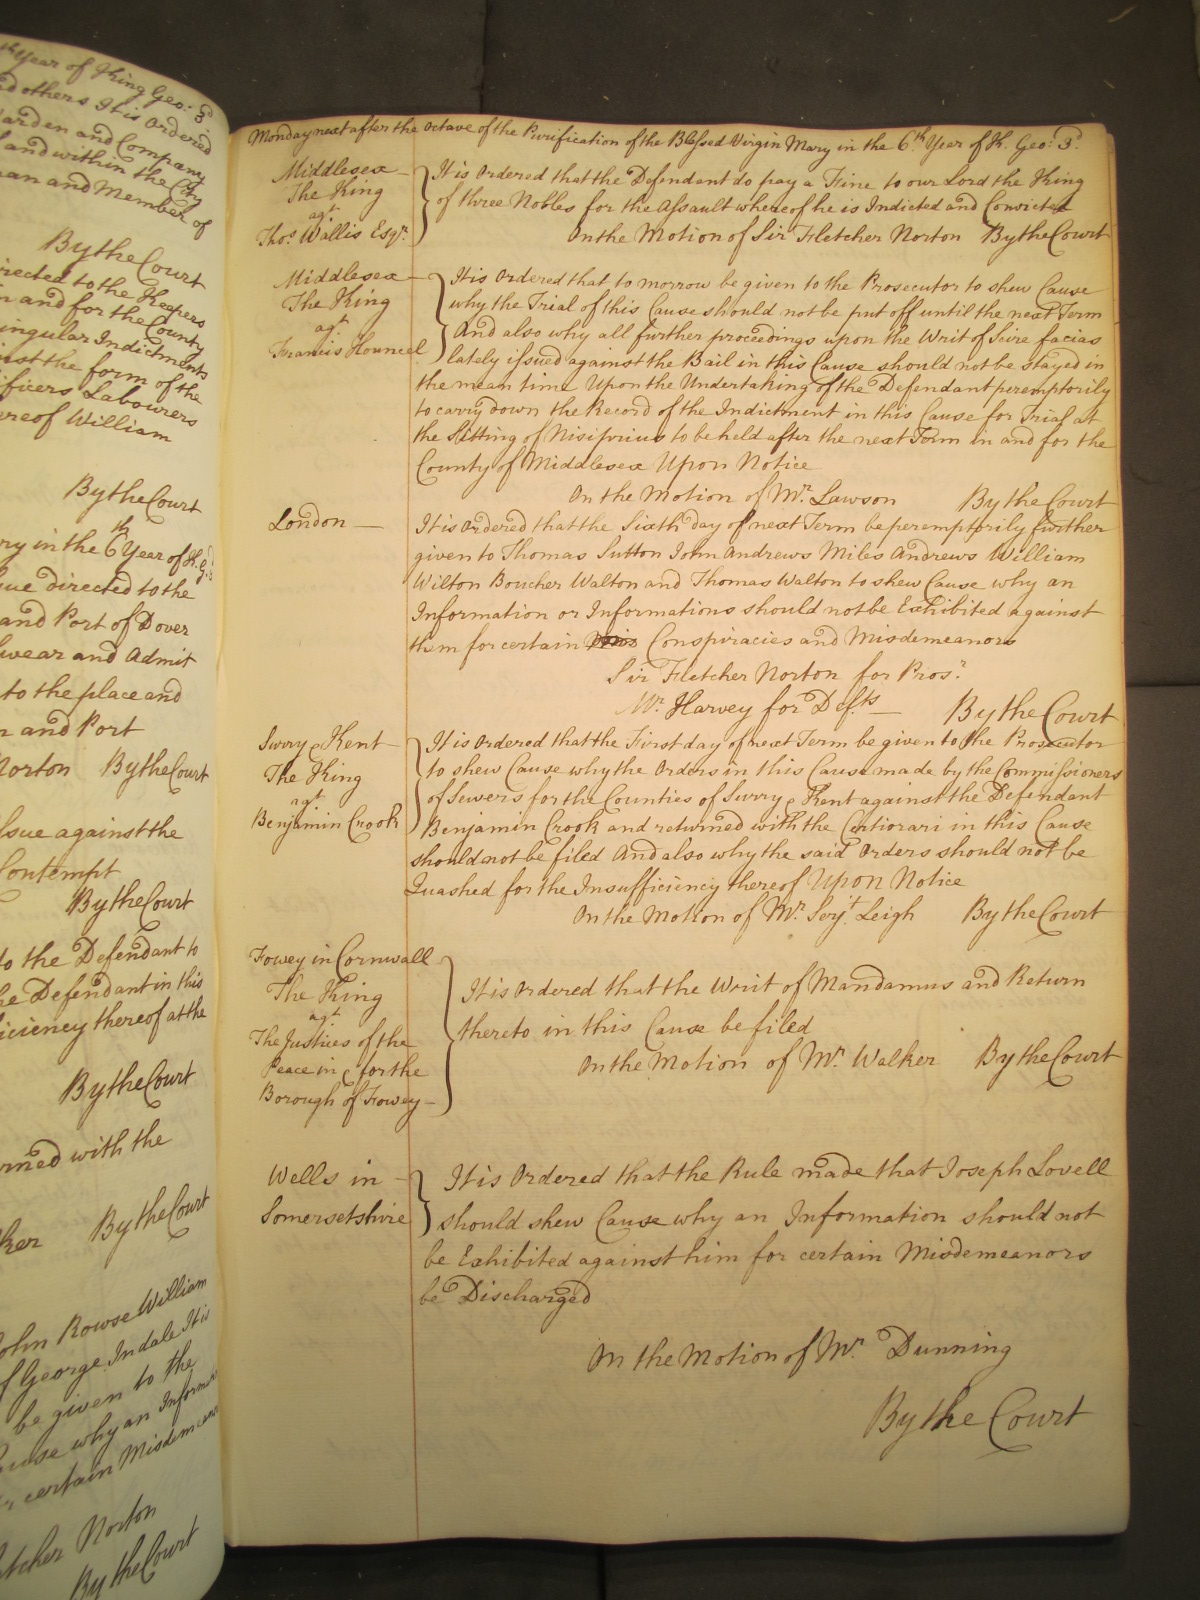 Year of King Geo: 3d
and others It is Ordered
Warden and Company
and within the City
man and Member of
By the Court
directed to the Keepers
in and for the County
Singular Indictments
against the form of the
Officers Labourers
hereof William
By the Court
in the 6th Year of K. G. 3
directed to the
and Port of Dover
swear and Admit
to the place and
and Port
Norton By the Court
Issue against the
Contempt
By the Court
to the Defendant to
the Defendant in this
thereof at the
By the Court
with the
By the Court
John Rowse William
of George Indale It is
be given to the
Cause why an Inform
certain Misdemeanors
Fletcher Norton
By the Court
Monday next after the Octave of the Purification of the Blessed Virgin Mary in the 6th Year of K. Geo: 3d.
Middlesex
The King
agt.
Thos. Wallis Esqr.
It is Ordered that the Defendant do pay a Fine to our Lord the King
of three Nobles for the Assault whereof he is Indicted and Convicted
On the Motion of Sir Fletcher Norton By the Court
Middlesex
The King
agt.
Francis Houncel
It is Ordered that to morrow be given to the Prosecutor to shew Cause
why the Trial of this Cause should not be put off until the next Term
And also why all further proceedings upon the Writ of Scire facias
lately issued against the Bail in this Cause should not be stayed in
the mean time Upon the Undertaking of the Defendant peremptorily
to carry down the Record of the Indictment in this Cause for Trial at
the Sitting of Nisi prius to be held after the next Term in and for the
County of Middlesex Upon Notice
On the Motion of Mr. Lawson By the Court
London
It is Ordered that the Sixth day of next Term be peremptorily further
given to Thomas Sutton John Andrews Miles Andrews William
Wilton Boucher Walton and Thomas Walton to shew Cause why an
Information or Informations should not be Exhibited against
them for certain Conspiracies and Misdemeanors
Sir Fletcher Norton for Prosr.
Mr. Harvey for Defts. By the Court
Surry & Kent
The King
agt.
Benjamin Crook
It is Ordered that the First day of next Term be given to the Prosecutor
to shew Cause why the Orders in this Cause made by the Commissioners
of Sewers for the Counties of Surry & Kent against the Defendant
Benjamin Crook and returned with the Certiorari in this Cause
should not be filed And also why the said Orders should not be
Quashed for the Insufficiency thereof Upon Notice
On the Motion of Mr. Serjt. Leigh By the Court
Fowey in Cornwall
The King
agt.
The Justices of the
Peace in & for the
Borough of Fowey
It is Ordered that the Writ of Mandamus and Return
thereto in this Cause be filed
On the Motion of Mr. Walker By the Court
Wells in
Somersetshire
It is Ordered that the Rule made that Joseph Lovell
should shew Cause why an Information should not
be Exhibited against him for certain Misdemeanors
be Discharged
On the Motion of Mr. Dunning
By the Court